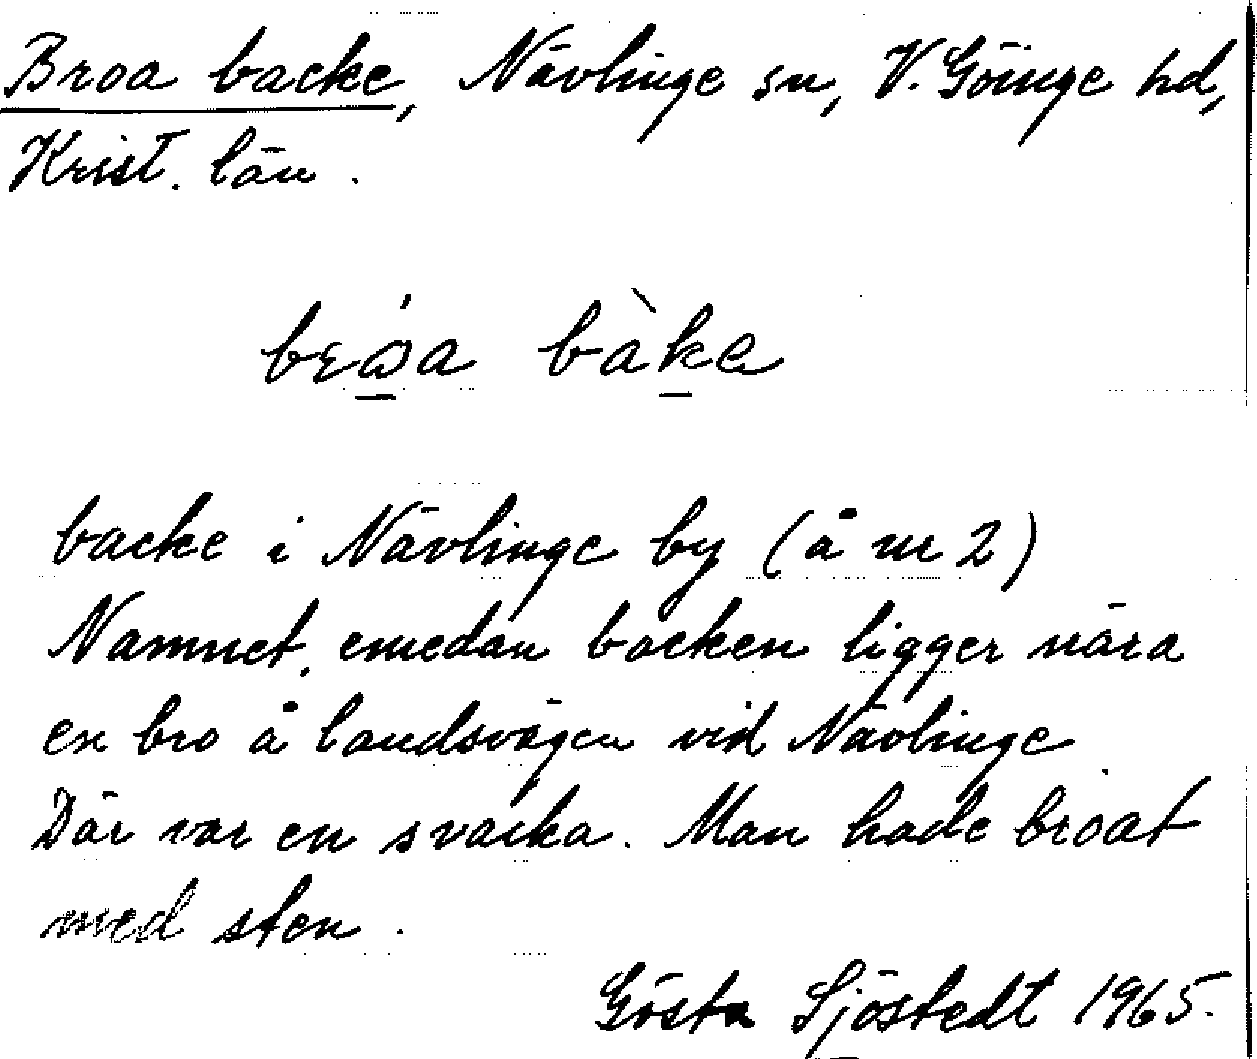 Broa backe, Nävlinge sn, V. Göinge hd,
Krist. län.
bróa bàke
backe i Nävlinge by (å nr 2)
Namnet, emedan backen ligger nära
en bro å landsvägen vid Nävlinge
Där var en svacka. Man hade broat
med sten.
Gösta Sjöstedt 1965.